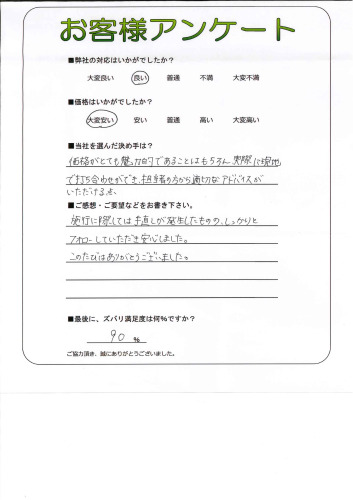 お客様アンケート
■弊社の対応はいかがでしたか？
大変良い 良い 普通 不満 大変不満
■価格はいかがでしたか？
大変安い 安い 普通 高い 大変高い
■当社を選んだ決め手は？
価格がとても魅力的であることはもちろん実際に現地
で打ち合わせができ、担当者の方から適切なアドバイスが
いただける点。
■ご感想・ご要望などをお書き下さい。
施行に際しては手直しが発生したものの、しっかりと
フォローしていただき安心しました。
このたびはありがとうございました。
■最後に、ズバリ満足度は何%ですか？
90 %
ご協力頂き、誠にありがとうございました。